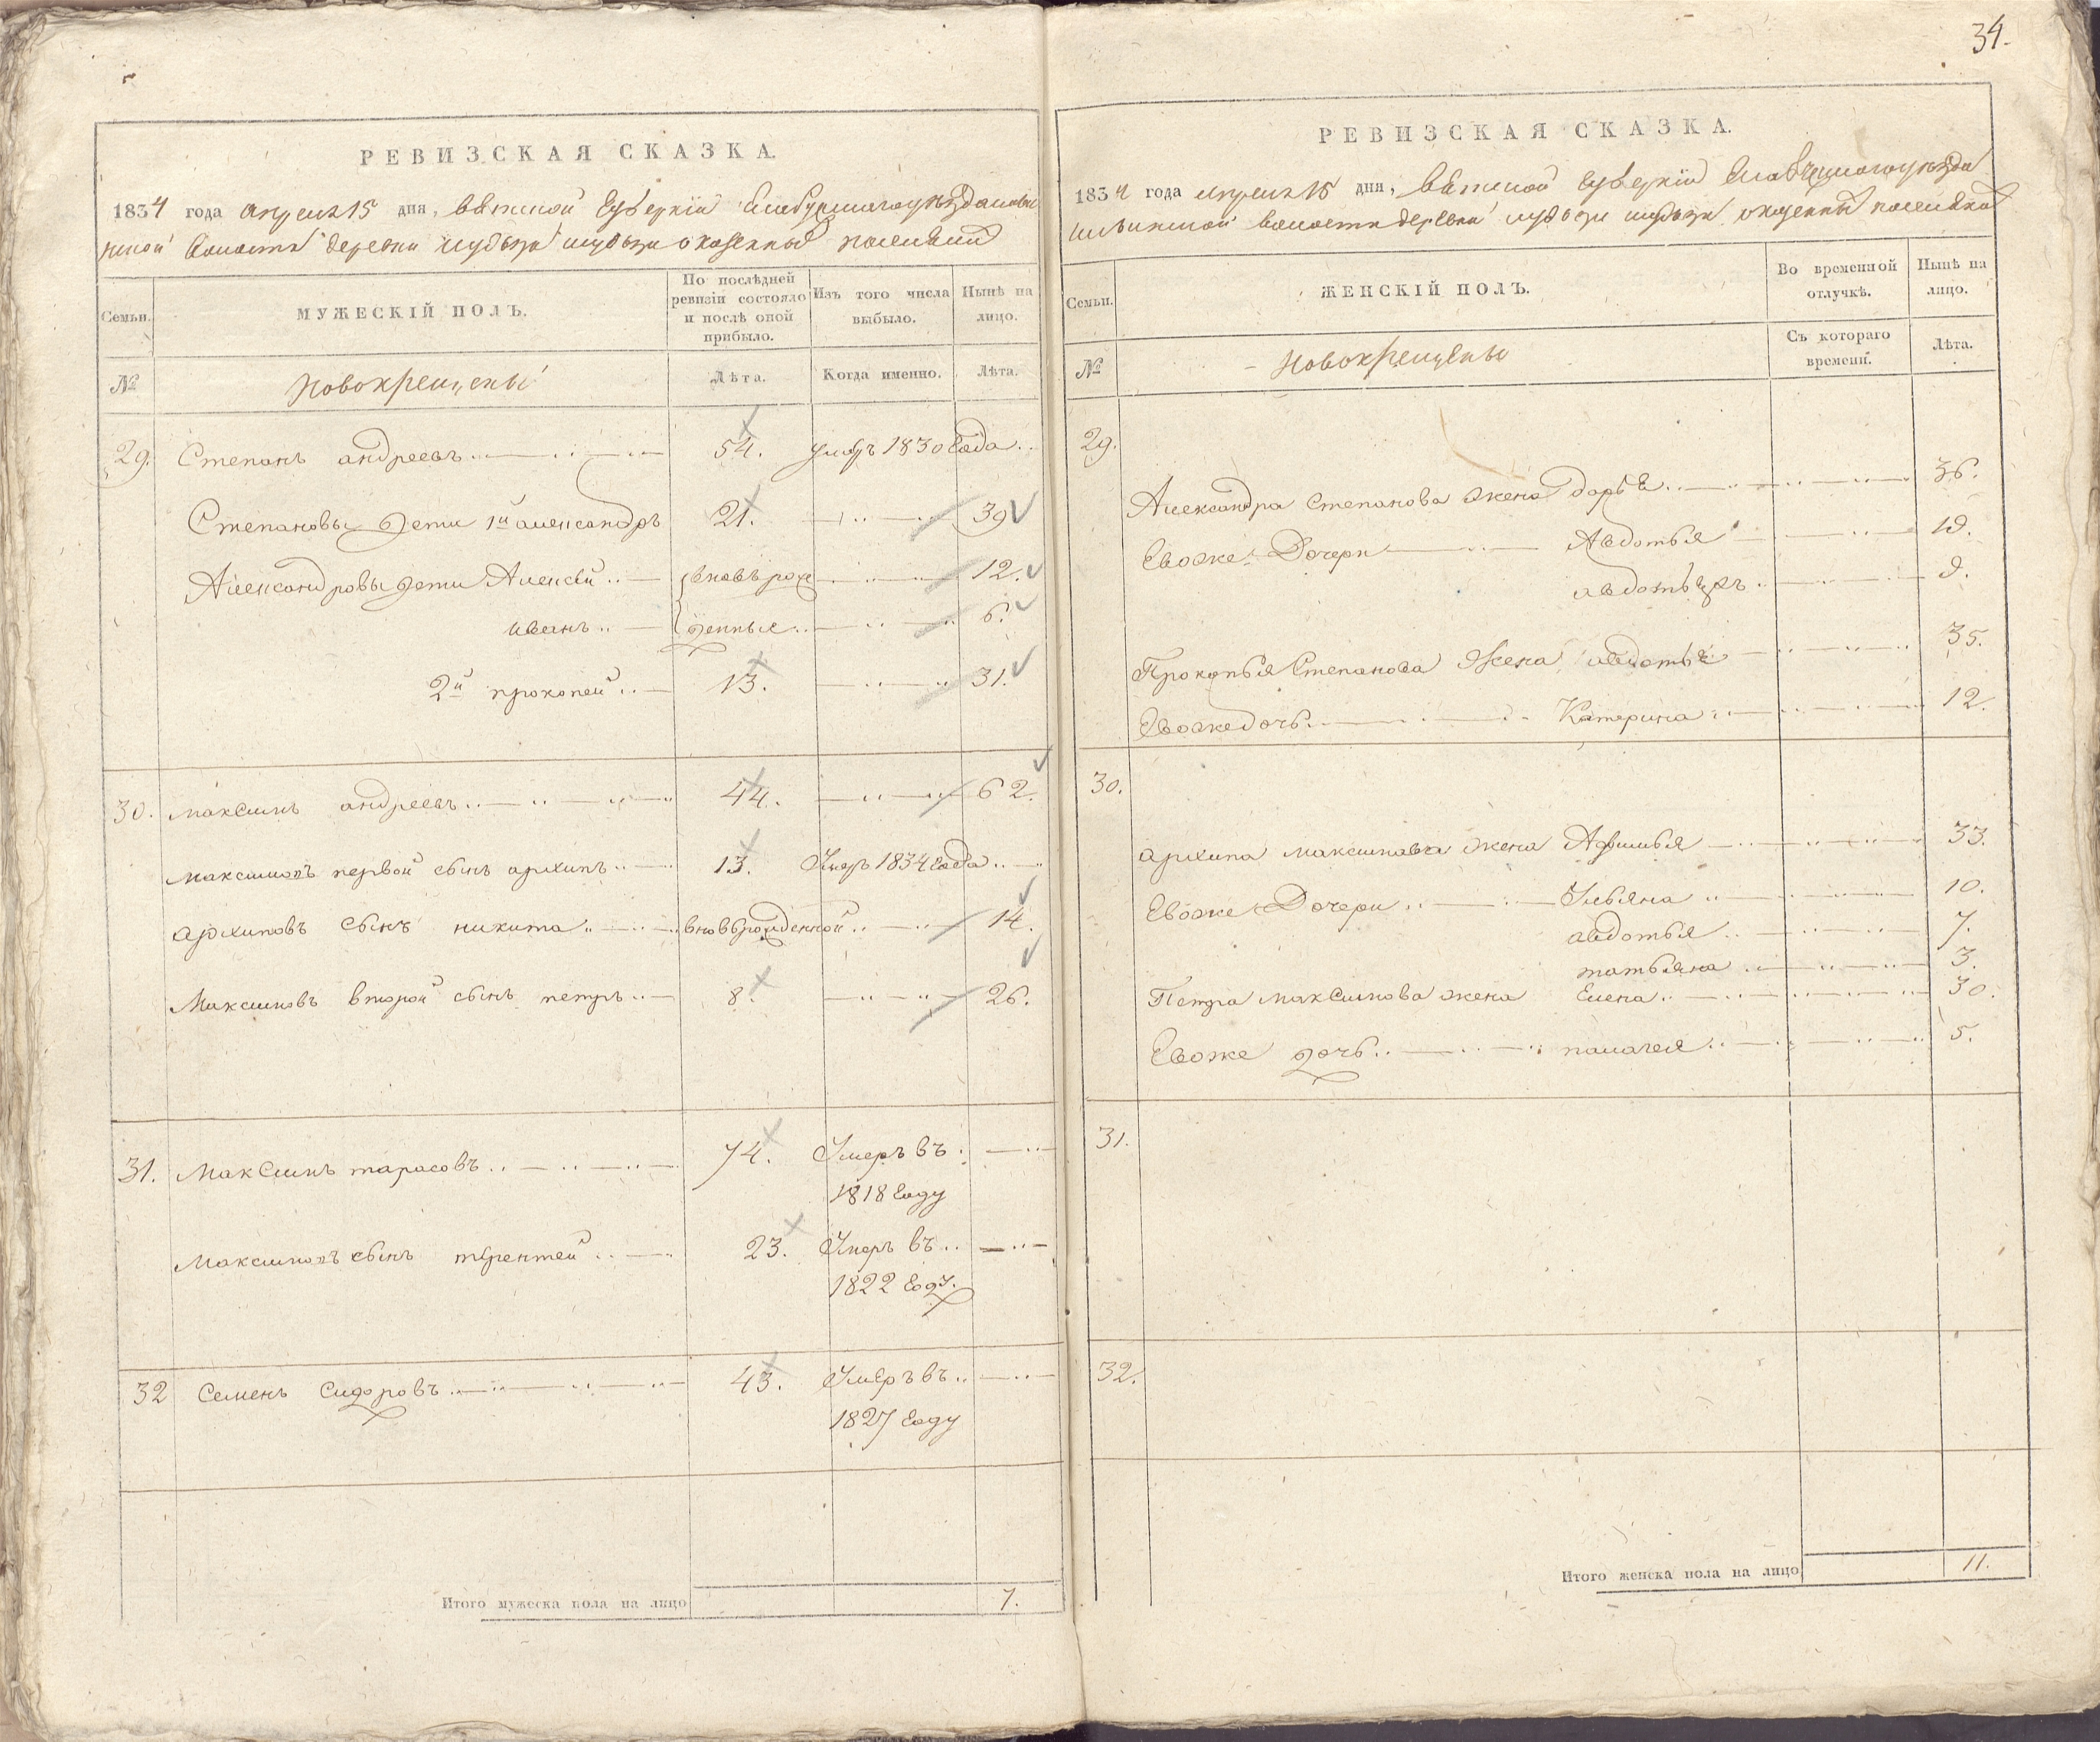 РЕВИЗСКАЯ СКАЗКА.
1834 года апреля 15 дня, вятской губернии Елабужского уезда
волости деревни казенных поселянъ
Семьи.
МУЖЕСКІЙ ПОЛЪ.
По послѣдней ревизіи состояло и послѣ оной прибыло.
Изъ того числа выбыло.
Нынѣ на лицо.
№
Новокрещены
Лѣта.
Когда именно.
Лѣта.
29. Степанъ андреевъ 54. умеръ 1830 года
Степановы дети 1й александръ 21. 39
Александровы дети Алексей вновь рож 12.
иванъ денные 6.
2й прокопей 13. 31.
30. максимъ андреевъ 44. 62.
максимовъ первой сынъ архипъ 13. Умеръ 1834 года
архиповъ сынъ никита вновьрожденной 14.
Максимовъ второй сынъ петръ 8. 26.
31. Максимъ тарасовъ 74. Умеръ въ
1818 году
максимовъ сынъ терентей 23. Умеръ въ
1822 году
32 Семенъ Сидоровъ 43. Умеръ въ
1827 году
Итого мужеска пола на лицо 7.
34.
РЕВИЗСКАЯ СКАЗКА.
1834 года апреля 15 дня, вятской губернии уезда
волости деревни казенных поселянъ
Семьи.
ЖЕНСКІЙ ПОЛЪ.
Во временной отлучкѣ.
Нынѣ на лицо.
№
Новокрещены
Съ котораго времени.
Лѣта.
29.
Александра степанова жена дарья 36.
Евоже Дочери Авдотья 19.
9.
Прокопья Степанова Жена авдотья 35.
Евоже дочь Катерина 12.
30.
архипа максимова жена Афимья 33.
Евоже Дочери Ульяна 10.
авдотья 7.
татьяна 3.
Петра максимова жена Елена 30.
Евоже дочь палагея 5.
31.
32.
Итого женска пола на лицо 11.